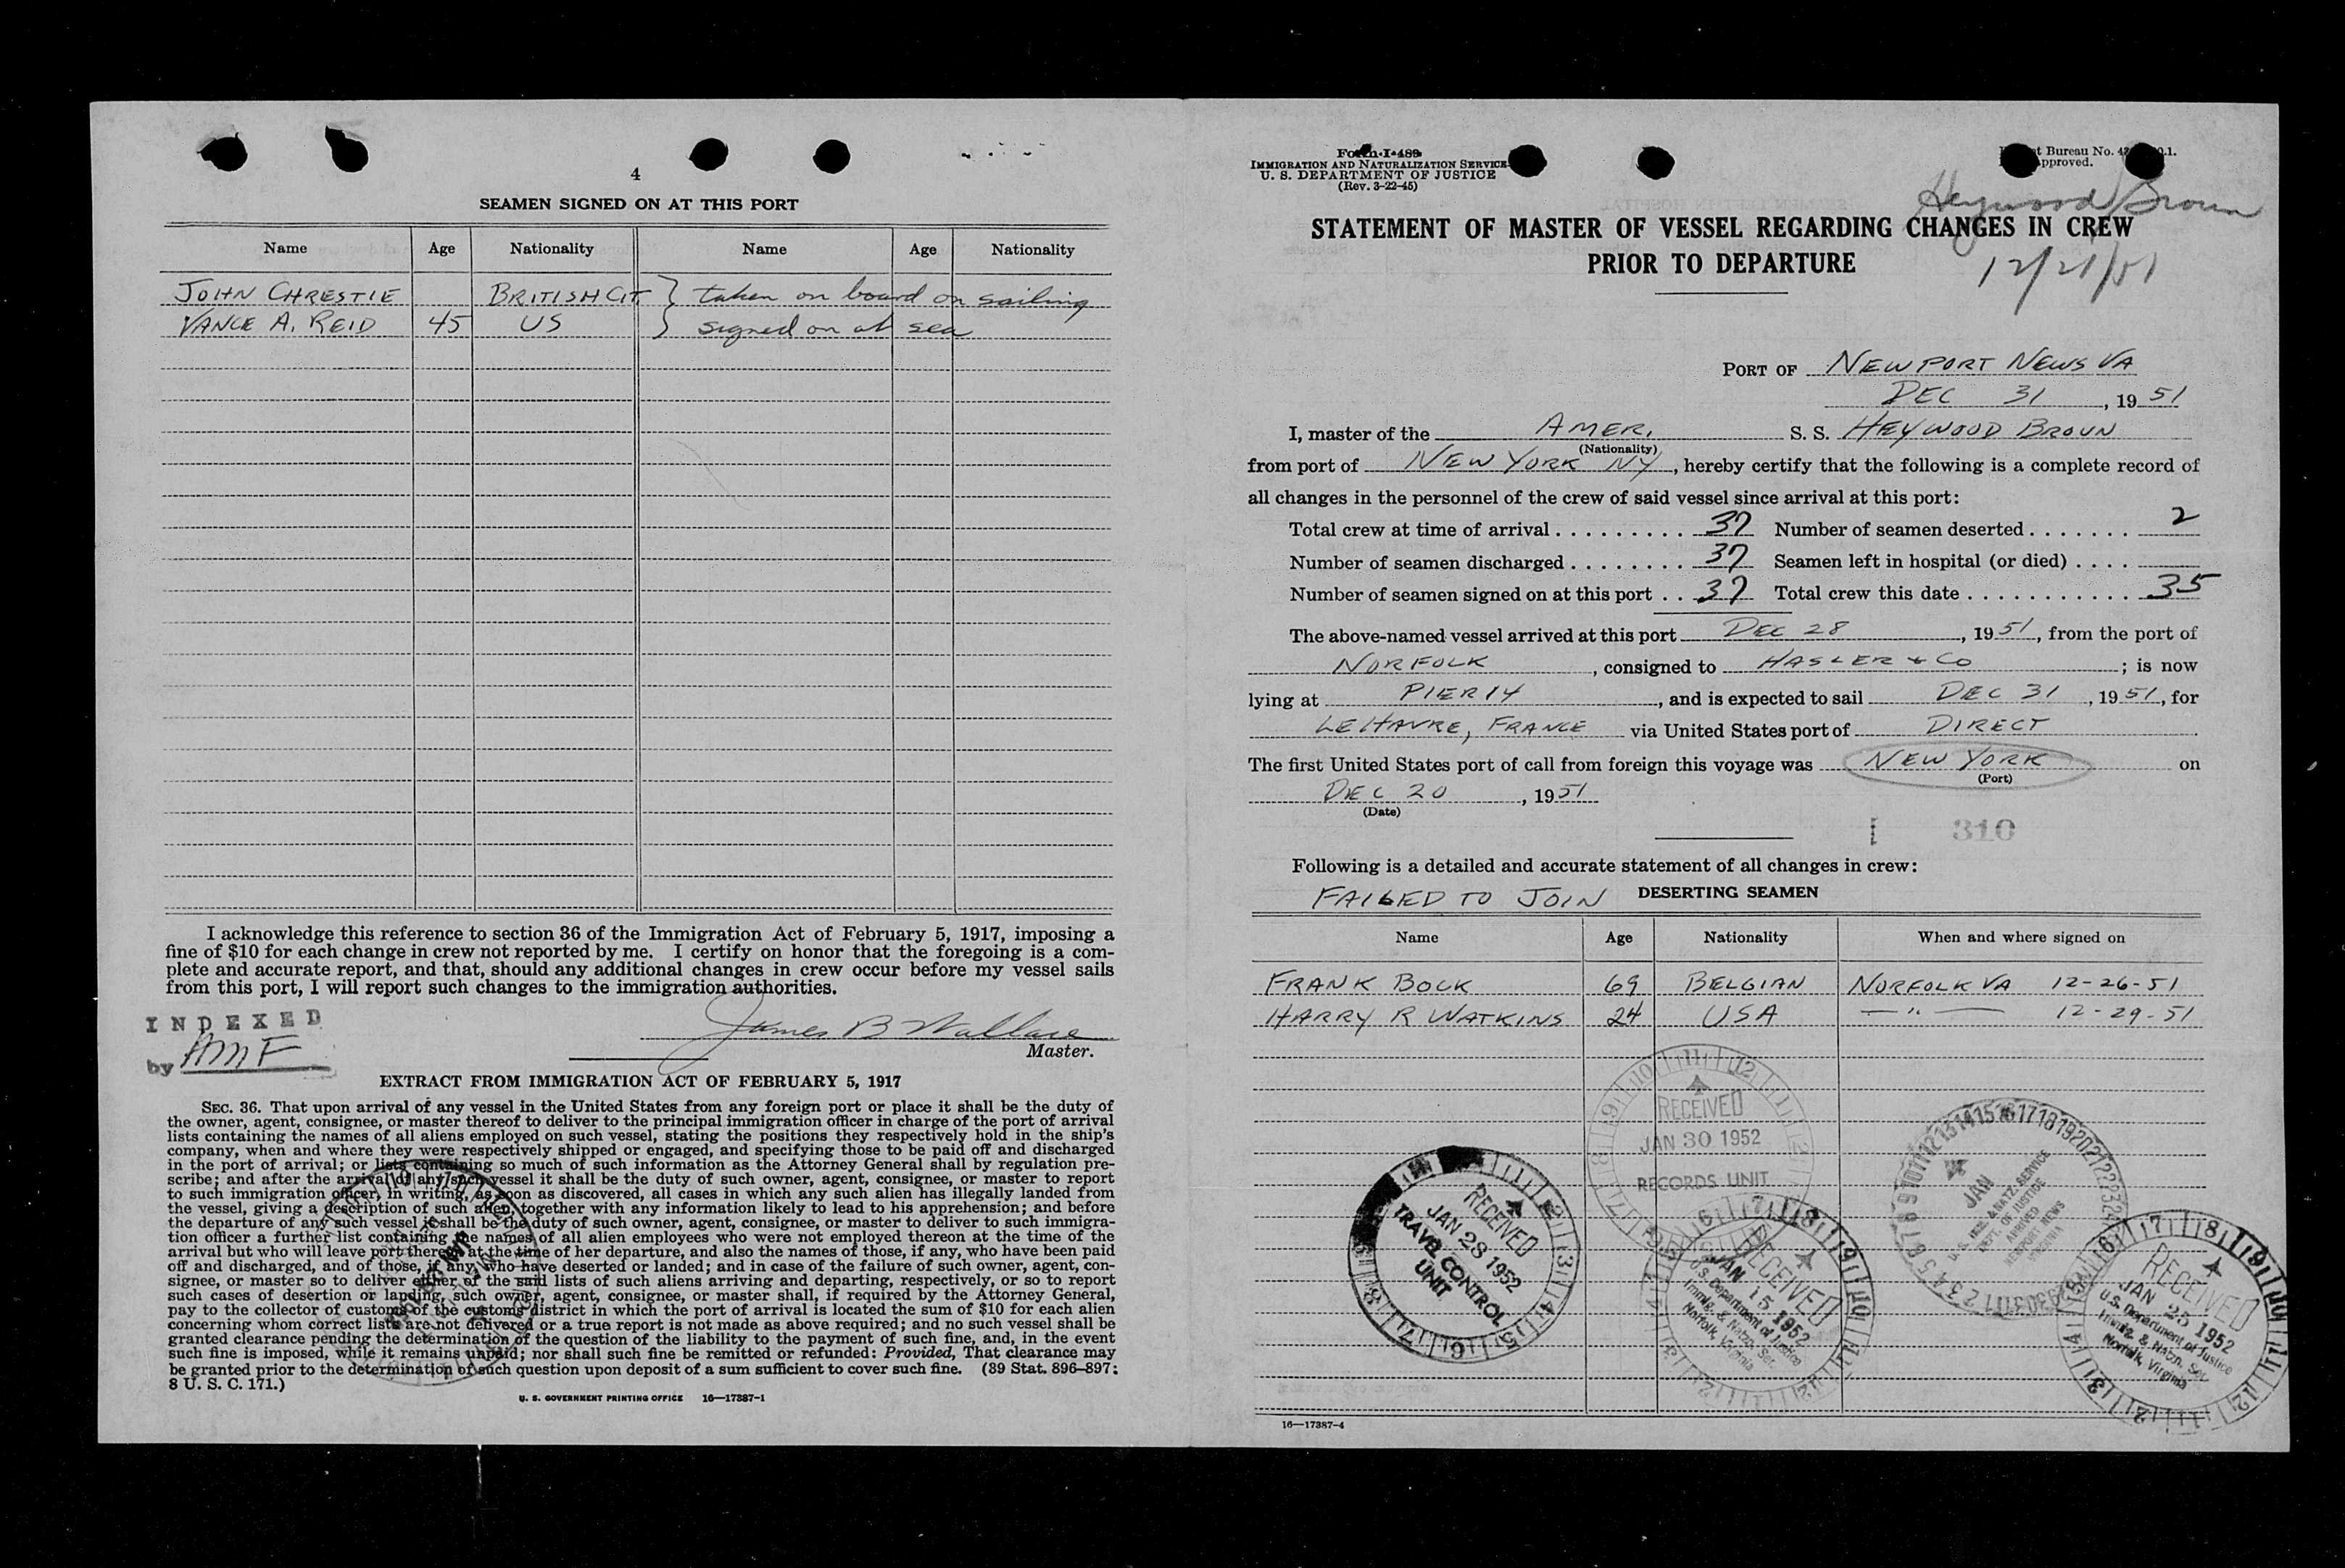 4
SEAMEN SIGNED ON AT THIS PORT
Name Age Nationality Name Age Nationality
JOHN CHRESTIE BRITISH CIT } taken on board on sailing
VANCE A. REID 45 US } signed on at sea
I acknowledge this reference to section 36 of the Immigration Act of February 5, 1917, imposing a
fine of $10 for each change in crew not reported by me. I certify on honor that the foregoing is a com-
plete and accurate report, and that, should any additional changes in crew occur before my vessel sails
from this port, I will report such changes to the immigration authorities.
INDEXED
by AMF
James B Wallace
Master.
EXTRACT FROM IMMIGRATION ACT OF FEBRUARY 5, 1917
SEC. 36. That upon arrival of any vessel in the United States from any foreign port or place it shall be the duty of
the owner, agent, consignee, or master thereof to deliver to the principal immigration officer in charge of the port of arrival
lists containing the names of all aliens employed on such vessel, stating the positions they respectively hold in the ship's
company, when and where they were respectively shipped or engaged, and specifying those to be paid off and discharged
in the port of arrival; or lists containing so much of such information as the Attorney General shall by regulation pre-
scribe; and after the arrival of any such vessel it shall be the duty of such owner, agent, consignee, or master to report
to such immigration officer, in writing, as soon as discovered, all cases in which any such alien has illegally landed from
the vessel, giving a description of such alien, together with any information likely to lead to his apprehension; and before
the departure of any such vessel it shall be the duty of such owner, agent, consignee, or master to deliver to such immigra-
tion officer a further list containing the names of all alien employees who were not employed thereon at the time of the
arrival but who will leave port thereon at the time of her departure, and also the names of those, if any, who have been paid
off and discharged, and of those, if any, who have deserted or landed; and in case of the failure of such owner, agent, con-
signee, or master so to deliver either of the said lists of such aliens arriving and departing, respectively, or so to report
such cases of desertion or landing, such owner, agent, consignee, or master shall, if required by the Attorney General,
pay to the collector of customs of the customs district in which the port of arrival is located the sum of $10 for each alien
concerning whom correct lists are not delivered or a true report is not made as above required; and no such vessel shall be
granted clearance pending the determination of the question of the liability to the payment of such fine, and, in the event
such fine is imposed, while it remains unpaid; nor shall such fine be remitted or refunded: Provided, That clearance may
be granted prior to the determination of such question upon deposit of a sum sufficient to cover such fine. (39 Stat. 896-897;
8 U. S. C. 171.)
U. S. GOVERNMENT PRINTING OFFICE 16—17387-1
Form I-489
IMMIGRATION AND NATURALIZATION SERVICE
U. S. DEPARTMENT OF JUSTICE
(Rev. 3-22-45)
Bureau No.
Approved.
Heywood Broun
12/21/51
STATEMENT OF MASTER OF VESSEL REGARDING CHANGES IN CREW
PRIOR TO DEPARTURE
PORT OF NEWPORT NEWS VA
DEC 31, 1951
I, master of the AMER. S. S. HEYWOOD BROUN
(Nationality)
from port of NEW YORK NY, hereby certify that the following is a complete record of
all changes in the personnel of the crew of said vessel since arrival at this port:
Total crew at time of arrival . . . . . . . . . 37 Number of seamen deserted . . . . . . . 2
Number of seamen discharged . . . . . . . . 37 Seamen left in hospital (or died) . . . .
Number of seamen signed on at this port . . 37 Total crew this date . . . . . . . . . . . 35
The above-named vessel arrived at this port DEC 28, 1951, from the port of
NORFOLK, consigned to HASLER & CO; is now
lying at PIER 14, and is expected to sail DEC 31, 1951, for
LE HAVRE, FRANCE via United States port of DIRECT
The first United States port of call from foreign this voyage was NEW YORK on
(Port)
DEC 20, 1951
(Date)
310
Following is a detailed and accurate statement of all changes in crew:
FAILED TO JOIN DESERTING SEAMEN
Name Age Nationality When and where signed on
FRANK BOCK 69 BELGIAN NORFOLK VA 12-26-51
HARRY R WATKINS 24 USA — " — 12-29-51
RECEIVED
JAN 30 1952
RECORDS UNIT
RECEIVED
JAN 28 1952
TRAVEL CONTROL
UNIT
RECEIVED
JAN 15 1952
U.S. Department of Justice
Immig. & Natzn. Ser.
Norfolk, Virginia
JAN
U. S. IMM. & NATZ. SERVICE
DEPT. OF JUSTICE
ARRIVED
NEWPORT NEWS
VIRGINIA
RECEIVED
JAN 25 1952
U.S. Department of Justice
Immig. & Natzn. Ser.
Norfolk, Virginia
16—17387-4